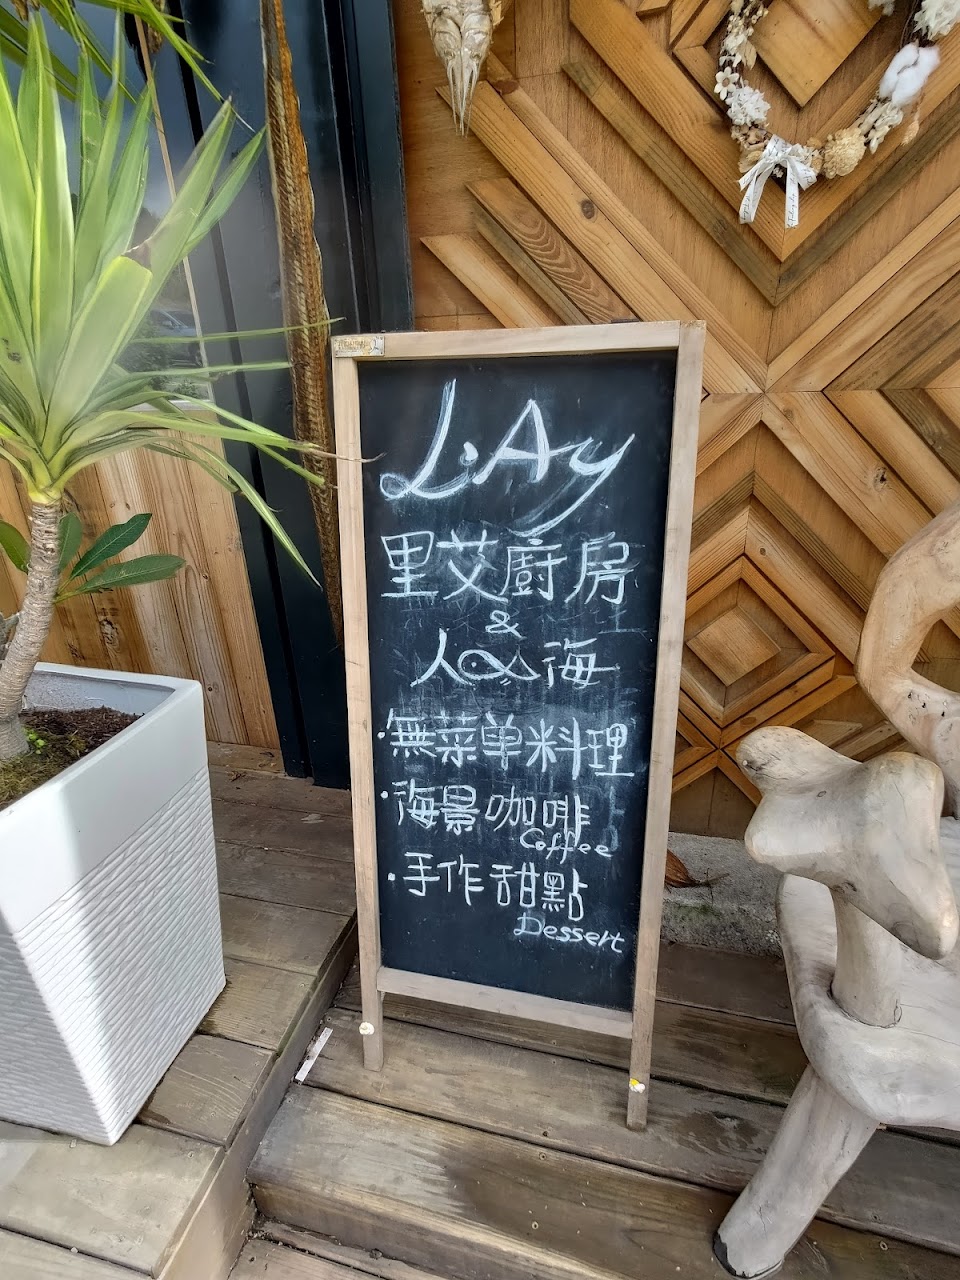 L.Ay
里艾廚房
&
人 海
·無菜单料理
·海景咖啡
Coffee
·手作甜點
Dessert